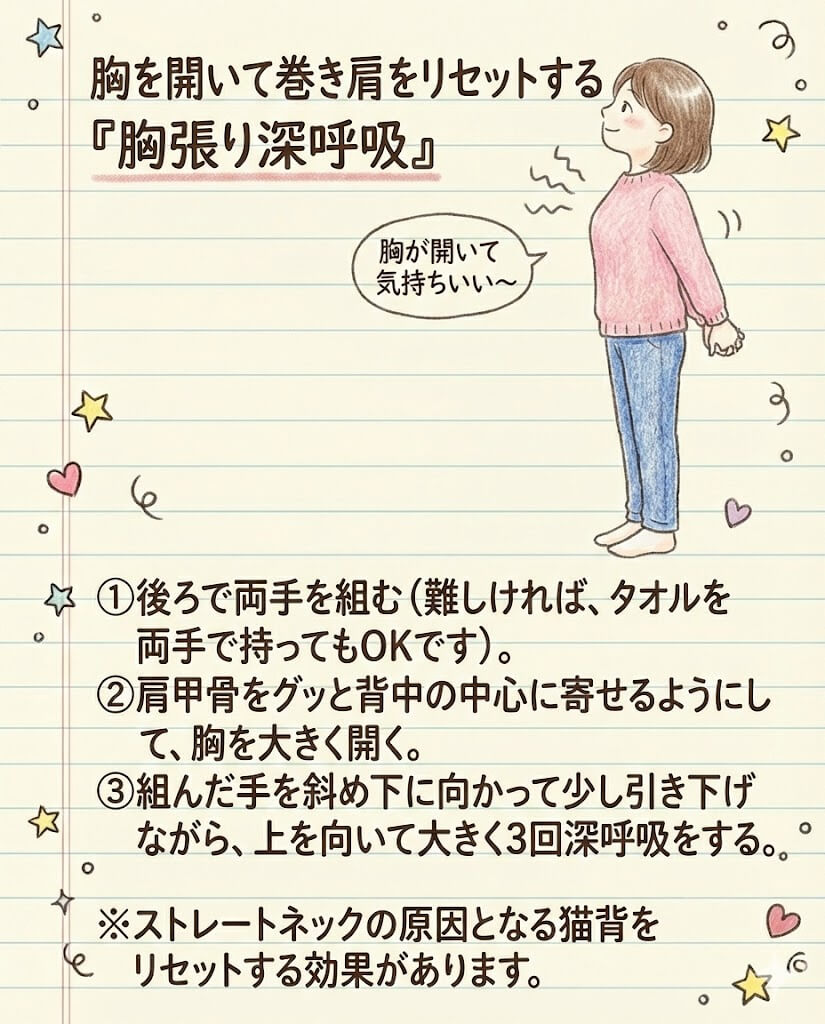 胸を開いて巻き肩をリセットする
『胸張り深呼吸』
胸が開いて
気持ちいい～
①後ろで両手を組む（難しければ、タオルを
両手で持ってもOKです）。
②肩甲骨をグッと背中の中心に寄せるようにし
て、胸を大きく開く。
③組んだ手を斜め下に向かって少し引き下げ
ながら、上を向いて大きく3回深呼吸をする。
※ストレートネックの原因となる猫背を
リセットする効果があります。